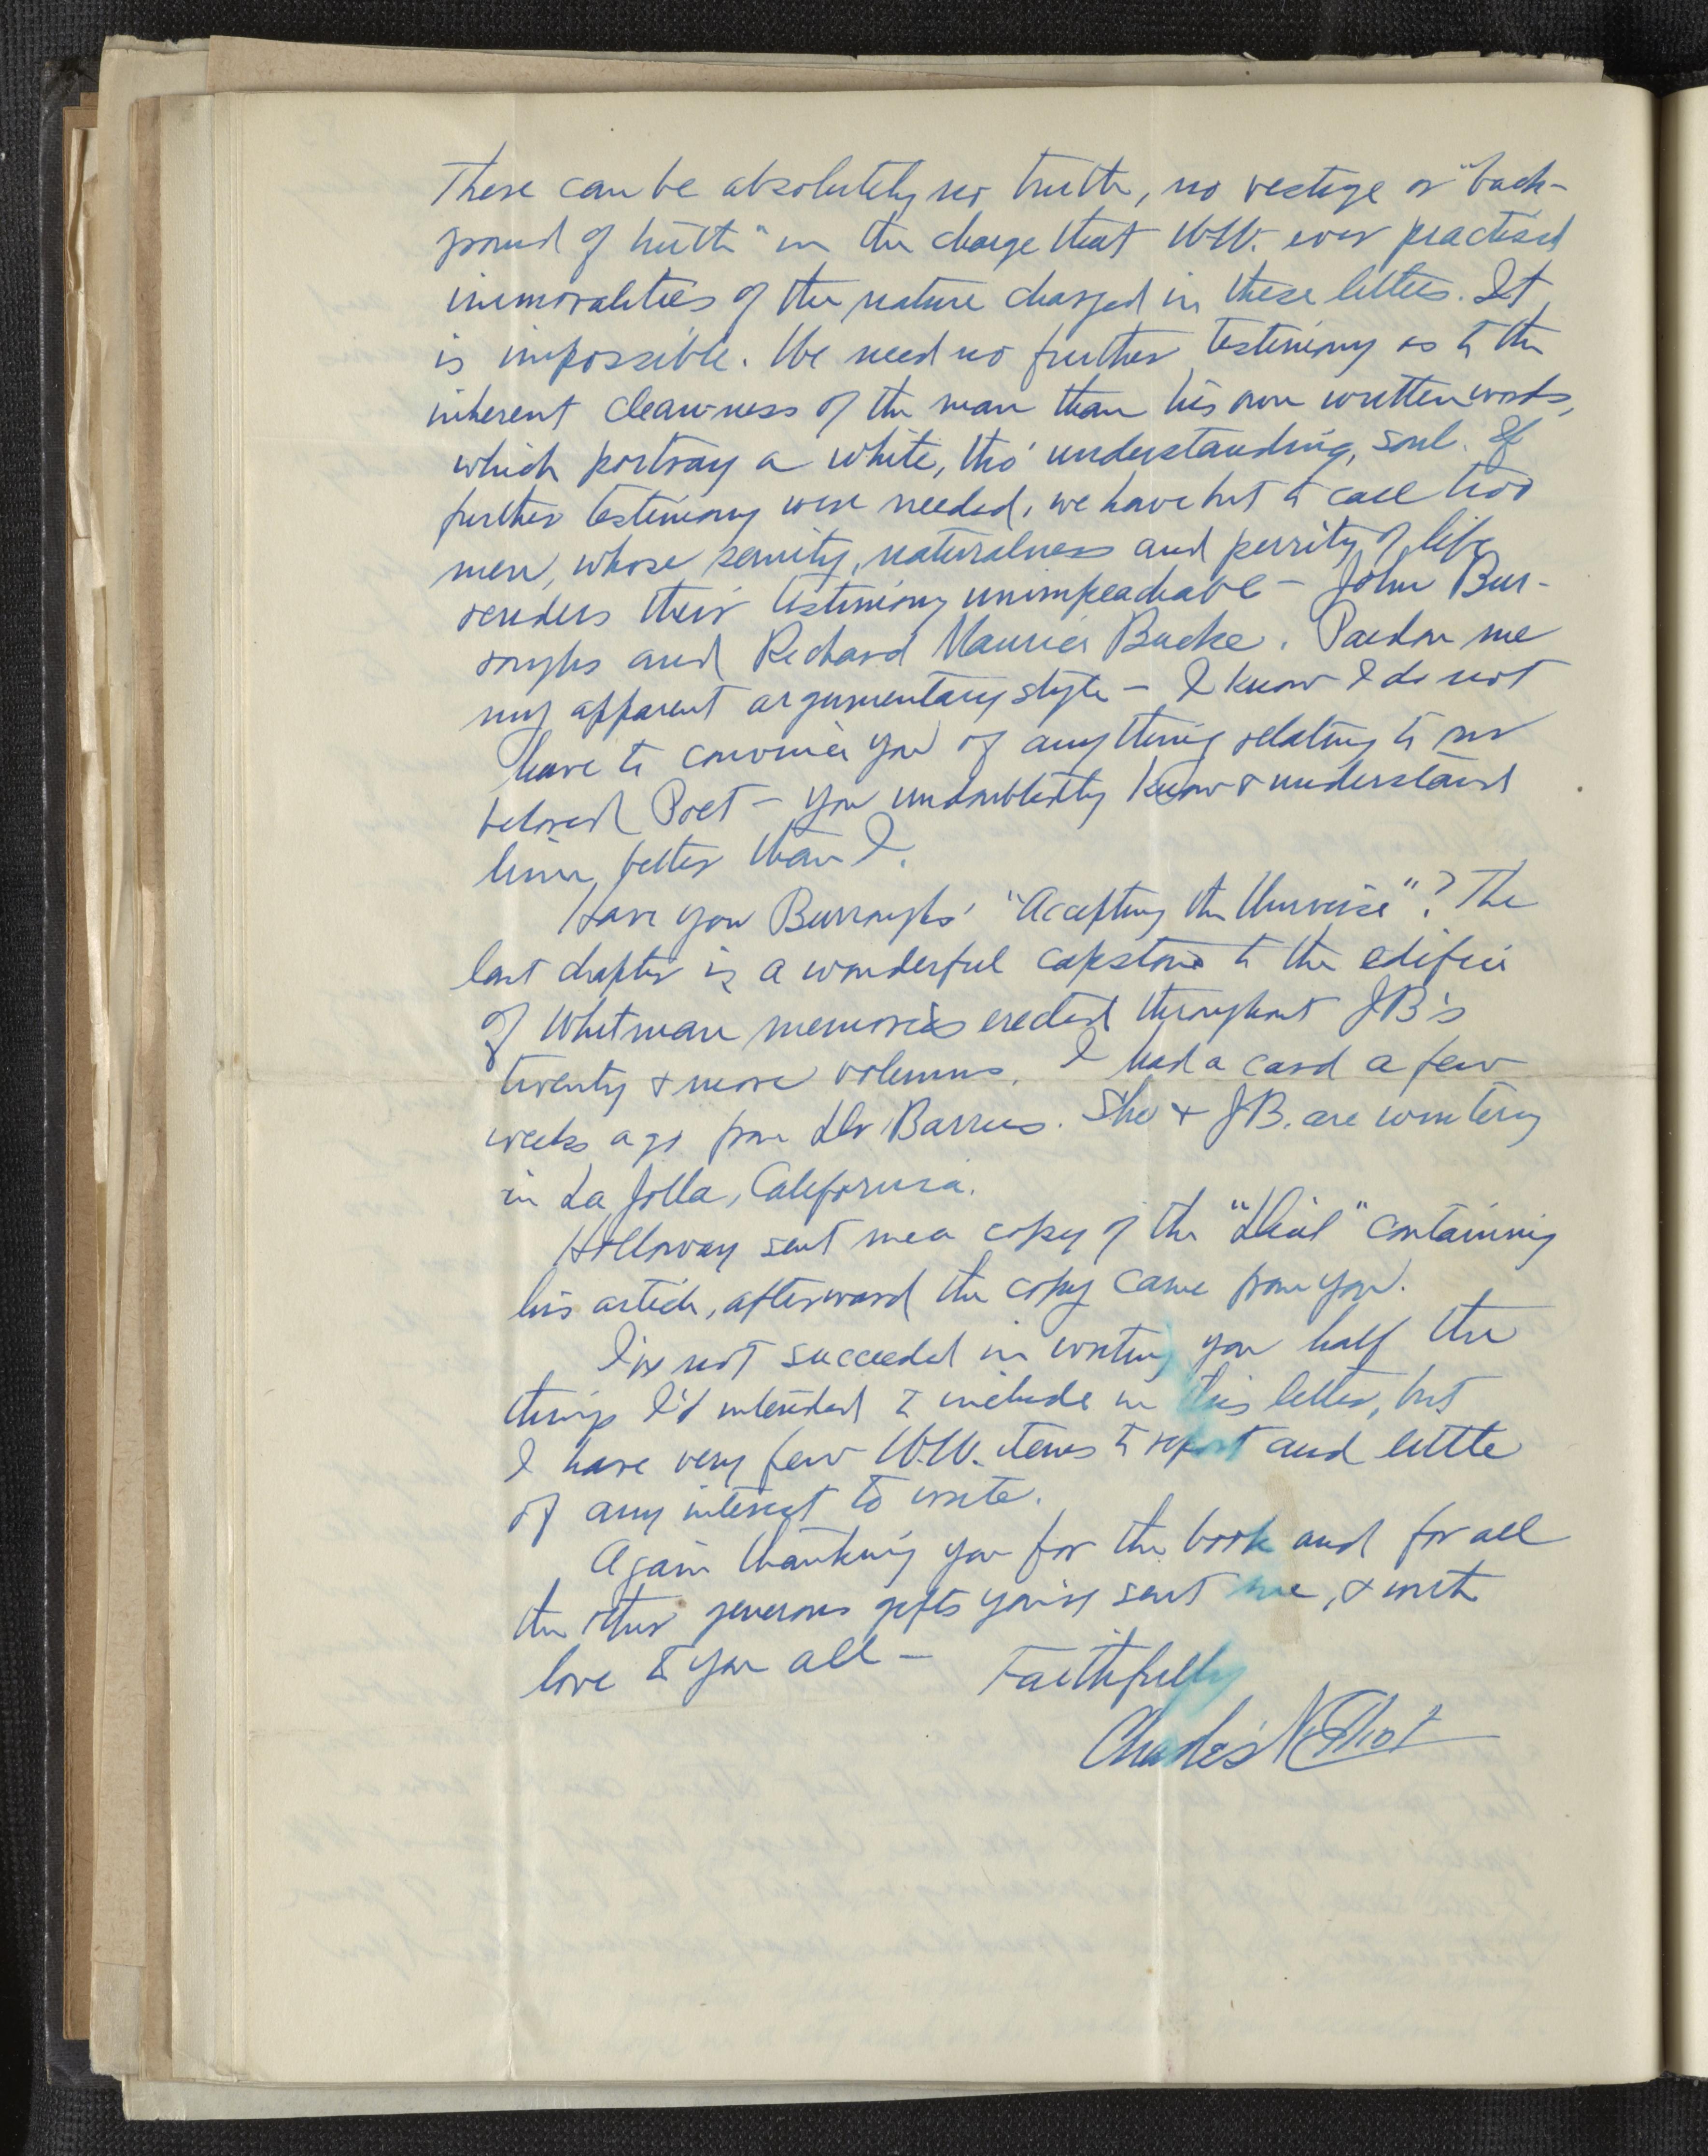 There can be absolutely no truth, no vestige or "back-
ground of truth" in the charge that W.W. ever practised
immoralities of the nature charged in these letters. It
is impossible. We need no further testimony as to the
inherent clean-ness of the man than his own written words,
which portray a white, tho' understanding, soul. If
further testimony were needed, we have but to call two
men, whose sanity, naturalness and purity of life
renders their testimony unimpeachable – John Bur-
roughs and Richard Maurice Bucke. Pardon me
my apparent argumentary style – I know I do not
have to convince you of anything relating to our
beloved Poet – you undoubtedly know & understand
him better than I.
Have you Burroughs' "Accepting the Universe"? The
last chapter is a wonderful capstone to the edifice
of Whitman memories erected throughout JB's
twenty & more volumns. I had a card a few
weeks ago from Dr Barrus. She & JB. are wintering
in La Jolla, California.
Holloway sent me a copy of the "Dial" containing
his article, afterward the copy came from you.
I've not succeeded in writing you half the
things I'd intended to include in this letter, but
I have very few W.W. items to report and little
of any interest to write.
Again thanking you for the book and for all
the other generous gifts you've sent me, & with
love to you all –
Faithfully
Charles N. Elliot